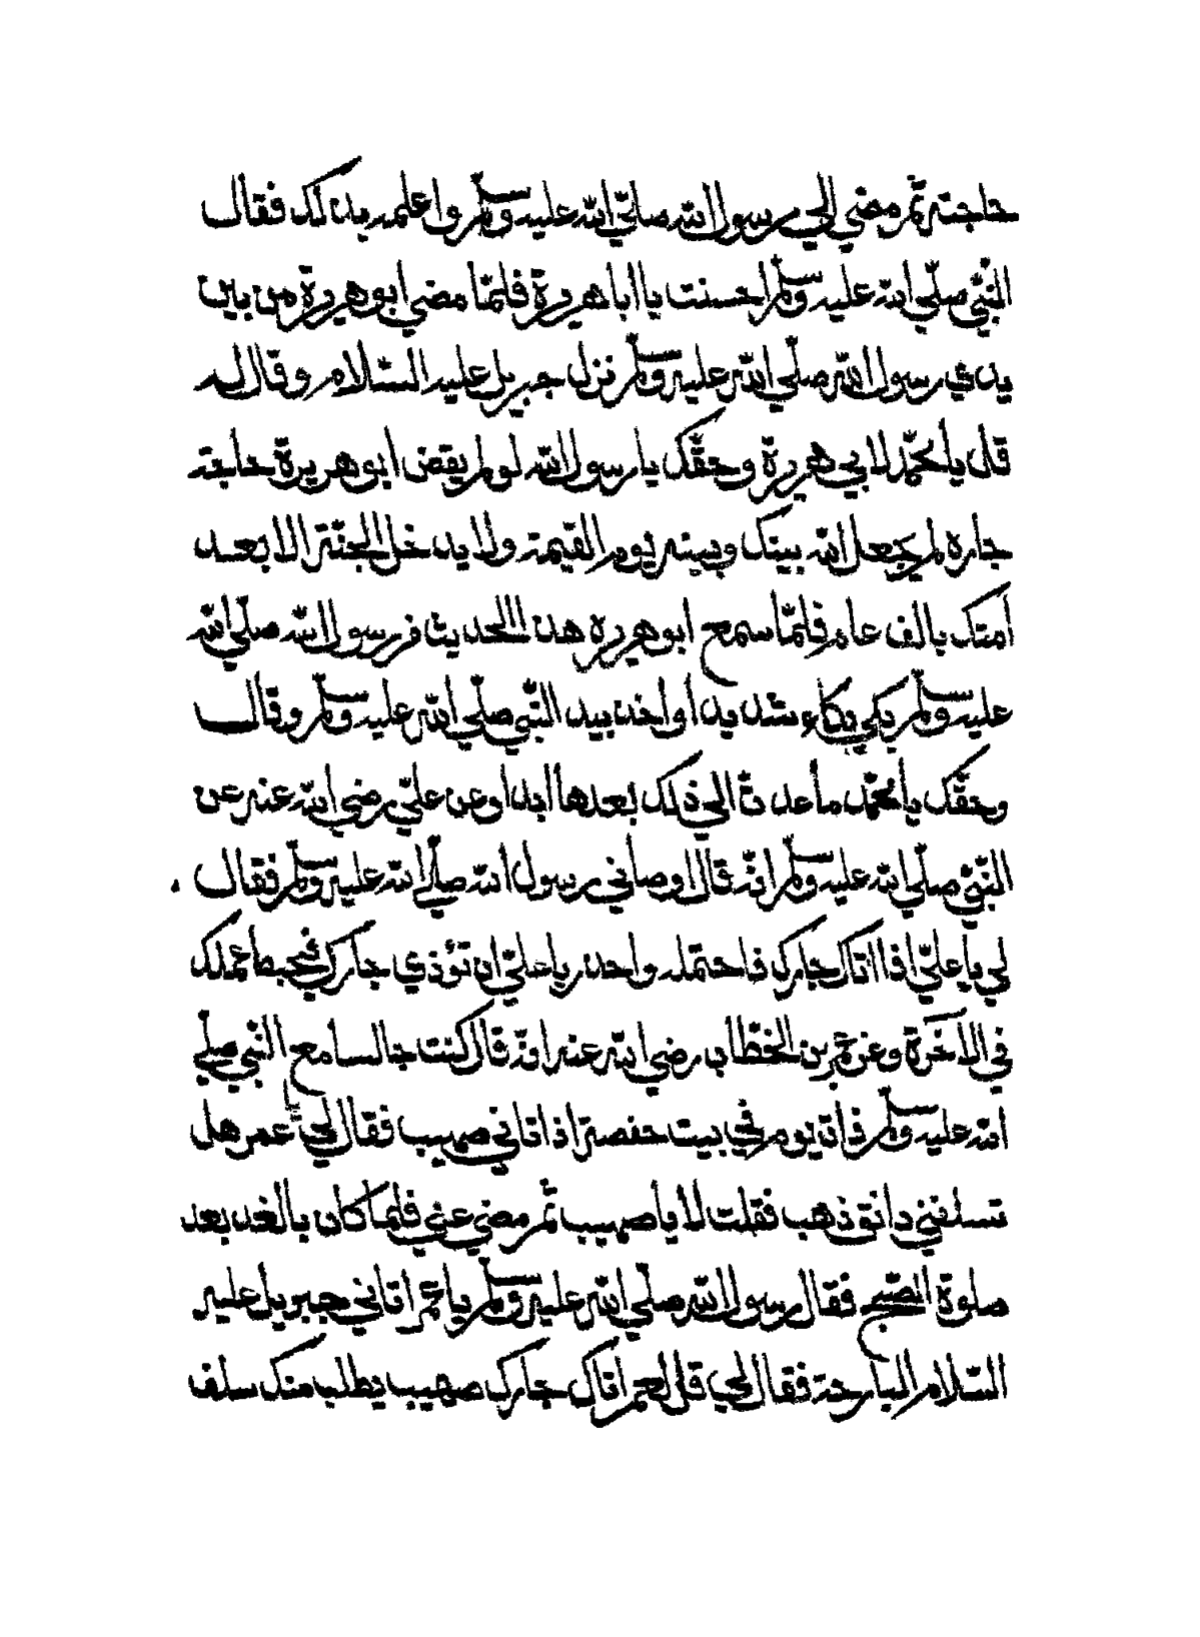 حاجته ثم مضي الي رسول الله صلي الله عليه وسلم واعلمه بذلك فقال
النبي صلي الله عليه وسلم احسنت يا ابا هريرة فلمّا مضي ابو هريرة من بين
يدي رسول الله صلّي الله عليه وسلم نزل جبريل عليه السّلام وقال له
قل يا محمّد لابي هريرة وحقّك يا رسول الله لو لم يقض ابو هريرة حاجة
جاره لم يجعل الله بينك وبينه يوم القيمة ولا يدخل الجنّة الا بعد
امتك بالف عام فلمّا سمع ابو هريرة هذا الحديث من رسول الله صلّي الله
عليه وسلم بكي بكاء شديدا واخذ بيد النّبي صلّي الله عليه وسلم وقال
وحقّك يا محمّد ما عدت الي ذلك بعدها ابدا وعن عليّ رضي الله عنه عن
النّبيّ صلّي الله عليه وسلم انّه قال اوصاني رسول الله صلّي الله عليه وسلم فقال
لي يا عليّ اذا اتاك جارك فاحتمله واحذر يا عليّ ان تؤذي جارك فيحبط عملك
في الآخرة وعن عمر بن الخطّاب رضي الله عنه انّه قال كنت جالسا مع النّبي صلّي
الله عليه وسلم ذات يوم في بيت حفصة اذ اتاني صهيب فقال لي يا عمر هل
تسلفني دانق ذهب فقلت لا يا صهيب ثم مضي عني فلما كان بالغد بعد
صلوة الصّبح فقال رسول الله صلّي الله عليه وسلم يا عمر اتاني جبريل عليه
السّلام البارحة فقال لي قل لعمر اتاك جارك صهيب يطلب منك سلف